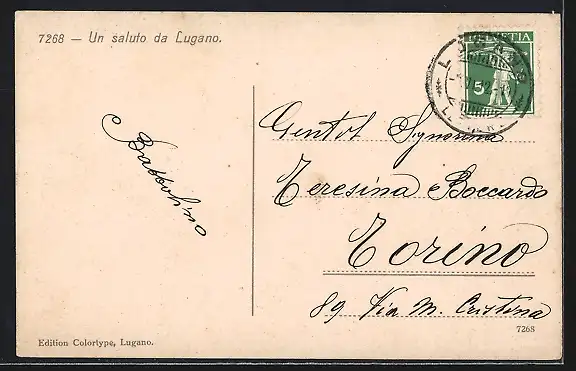 7268 — Un saluto da Lugano.
HELVETIA
5
Gentil Signorina
Teresina Boccardo
Torino
89 Via M. Cristina
7268
Edition Colortype, Lugano.